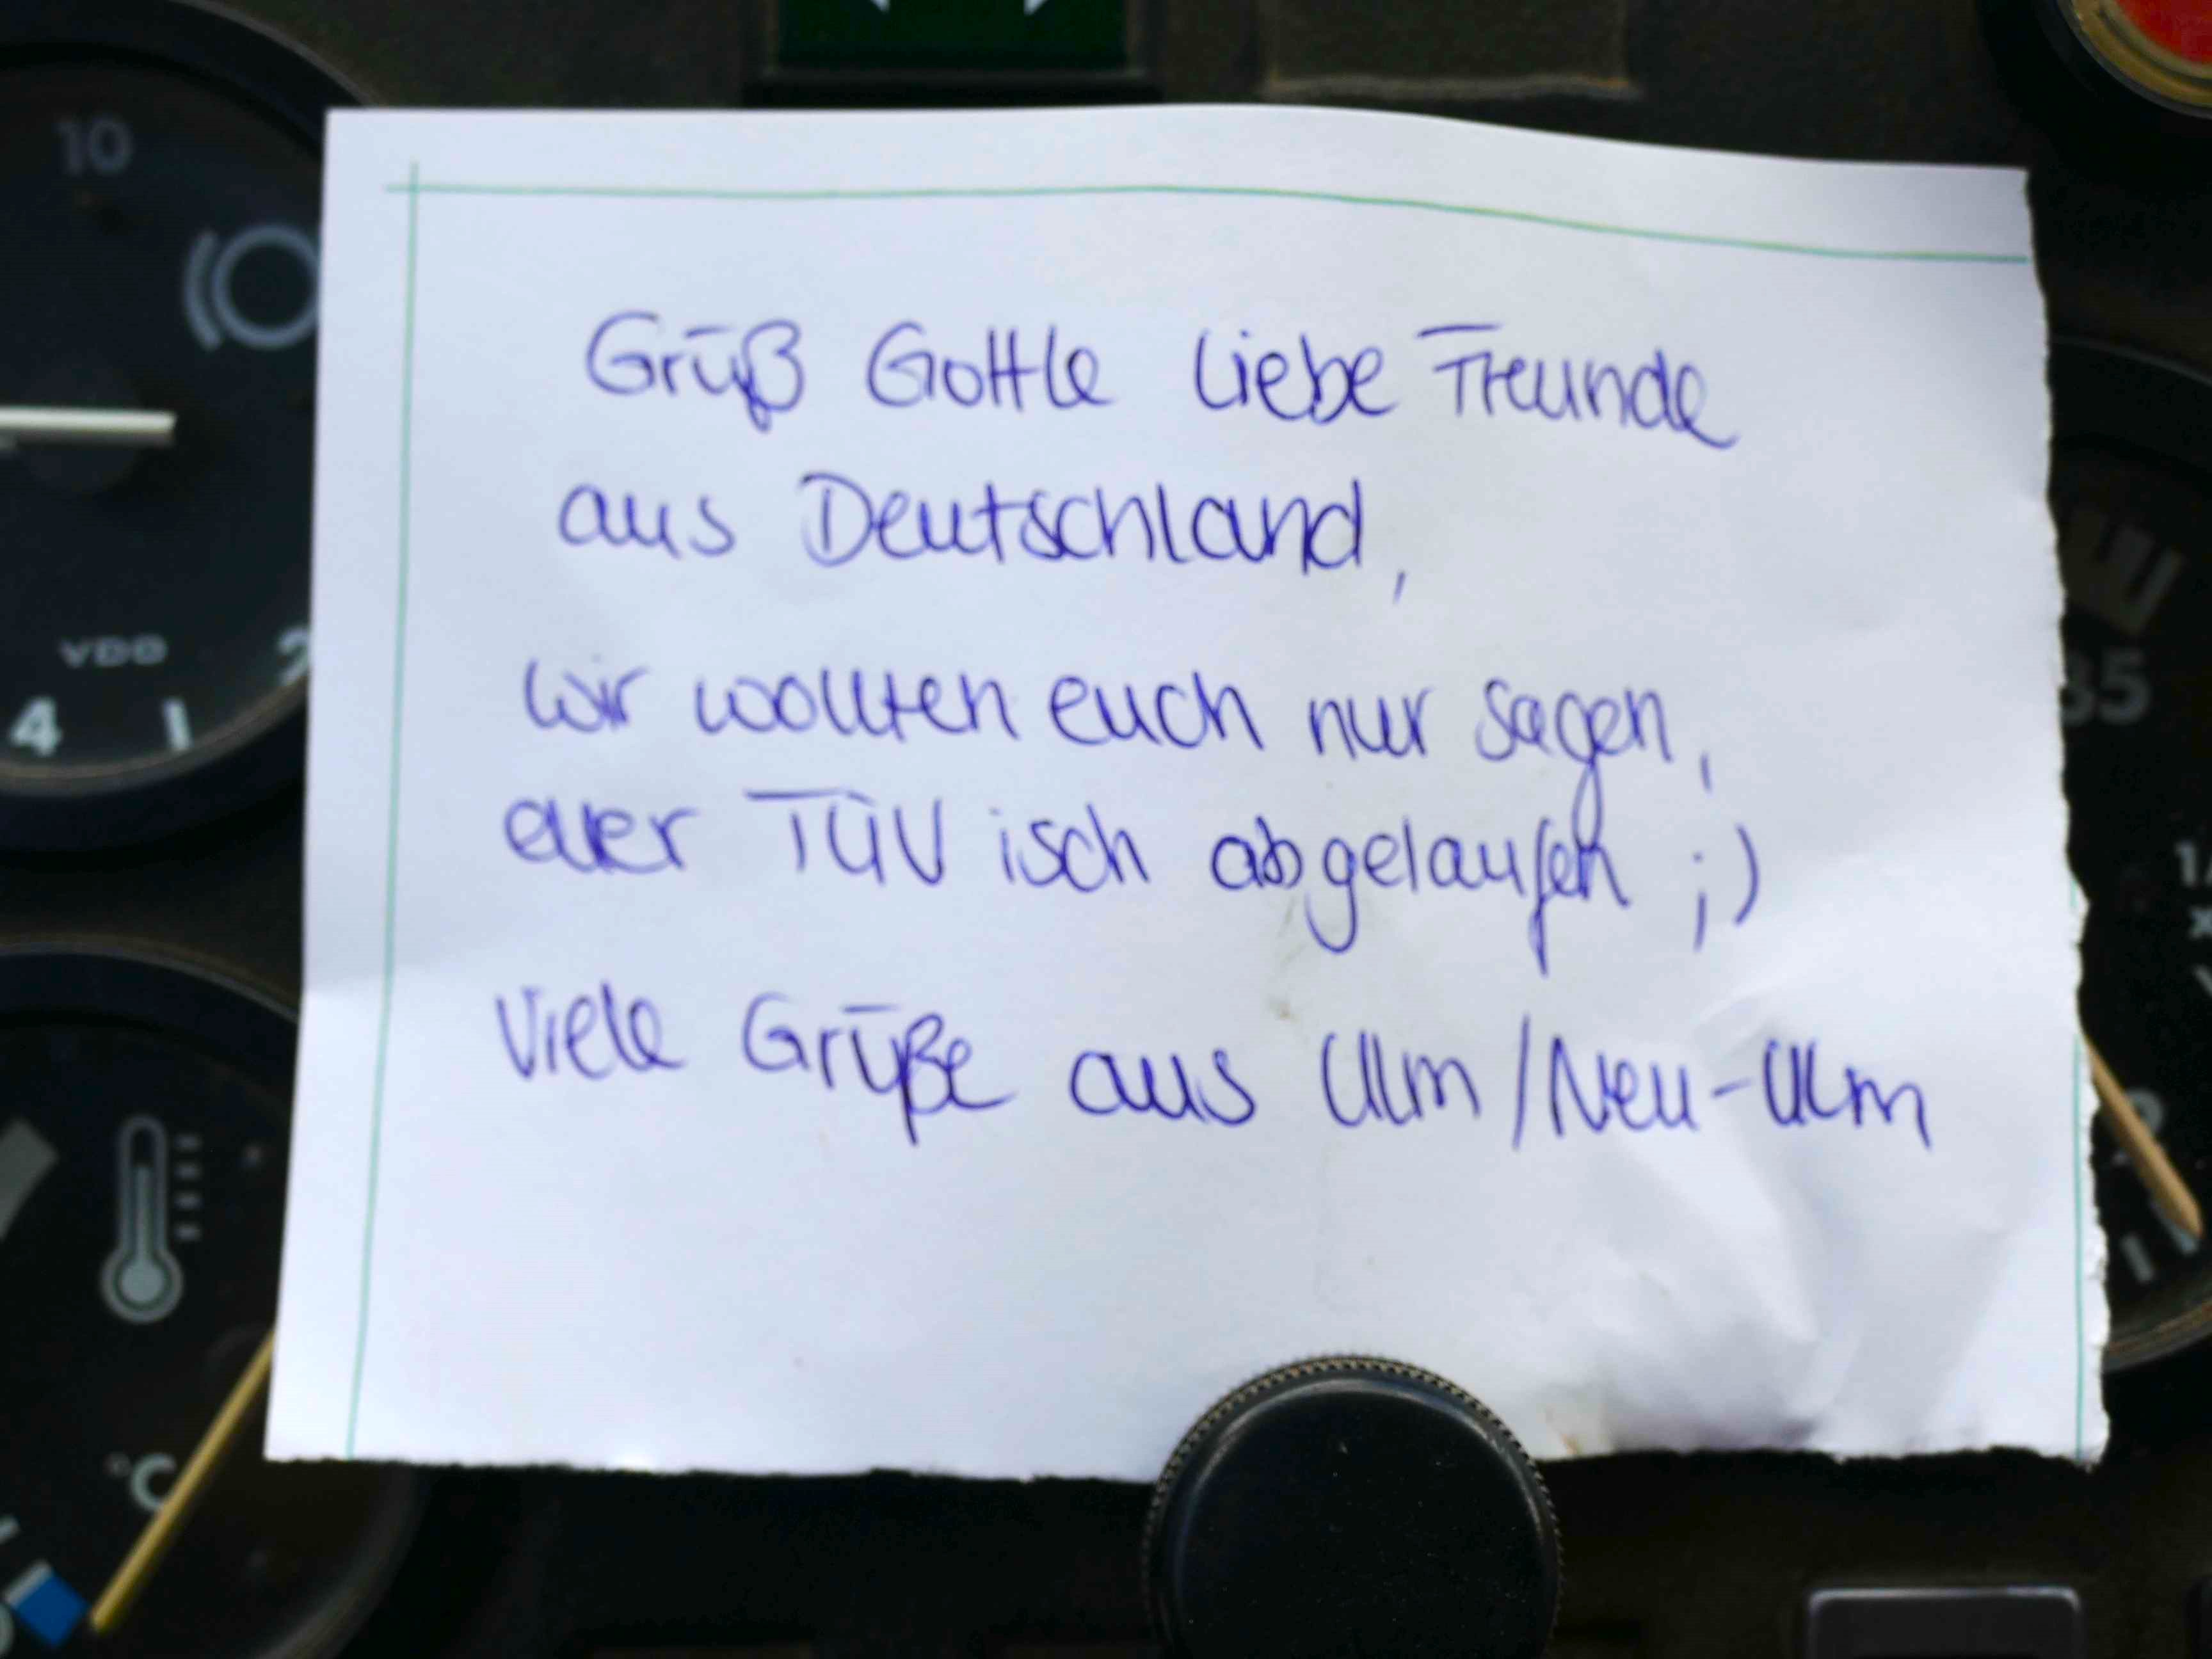 10
VDO
4 1 2
Grüß Gottle liebe Freunde
aus Deutschland,
wir wollten euch nur sagen,
euer TÜV isch abgelaufen ;)
Viele Grüße aus Ulm/Neu-Ulm
35
°C